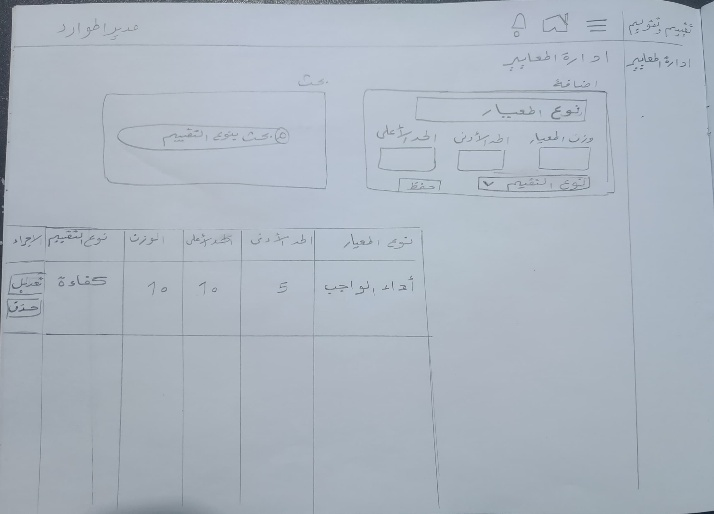 تقييم وتقويم
مدير الموارد
ادارة المعايير
ادارة المعايير
اضافة
نوع المعيار
وزن المعيار
الحد الأدنى
الحد الأعلى
نوع التقييم
حفظ
بحث
بحث بنوع التقييم
نوع المعيار الحد الأدنى الحد الأعلى الوزن نوع التقييم الاجراء
أداء الواجب 5 10 10 كفاءة تعديل
حذف